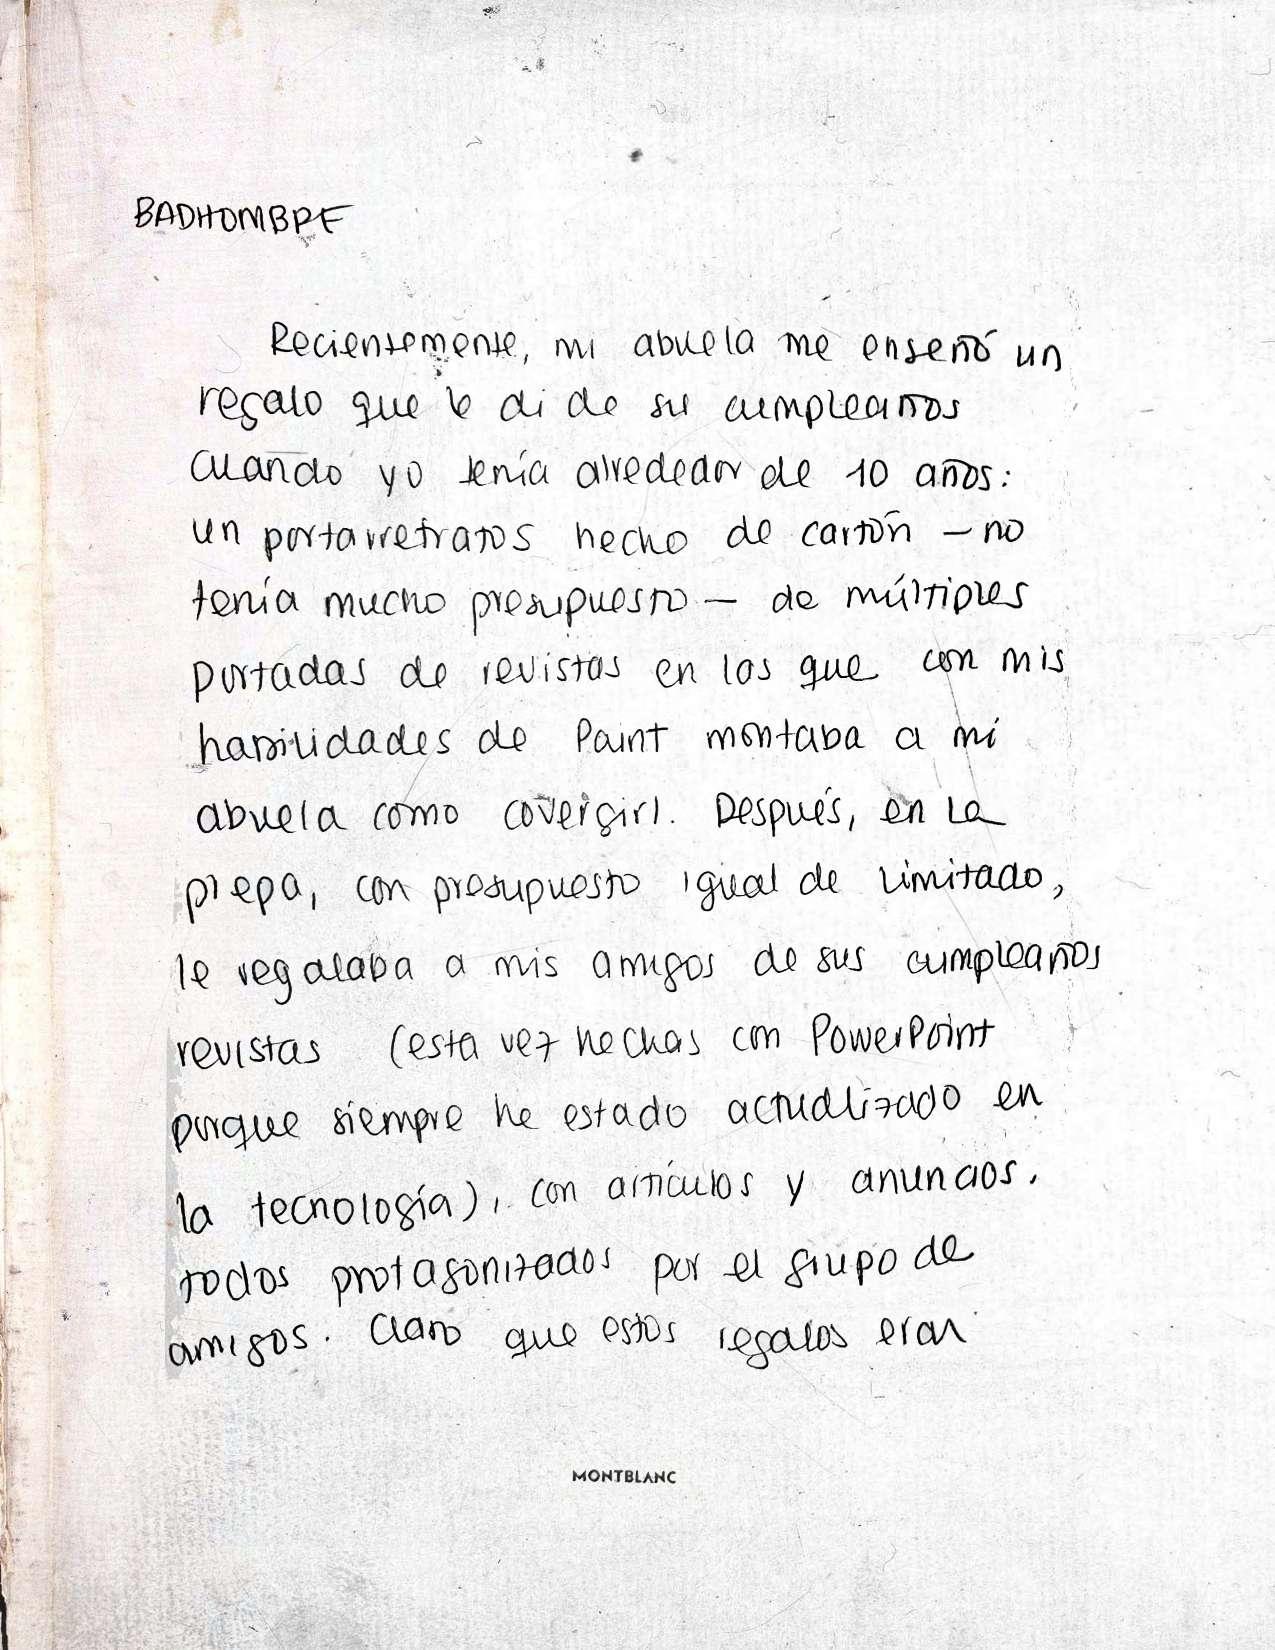 BADHOMBRE
Recientemente, mi abuela me enseñó un
regalo que le di de su cumpleaños
cuando yo tenía alrededor de 10 años:
un portarretratos hecho de cartón — no
tenía mucho presupuesto — de múltiples
portadas de revistas en las que con mis
habilidades de Paint montaba a mi
abuela como covergirl. Después, en la
prepa, con presupuesto igual de limitado,
le regalaba a mis amigos de sus cumpleaños
revistas (esta vez hechas con PowerPoint
porque siempre he estado actualizado en
la tecnología), con artículos y anuncios,
todos protagonizados por el grupo de
amigos. Claro que estos regalos eran
MONTBLANC